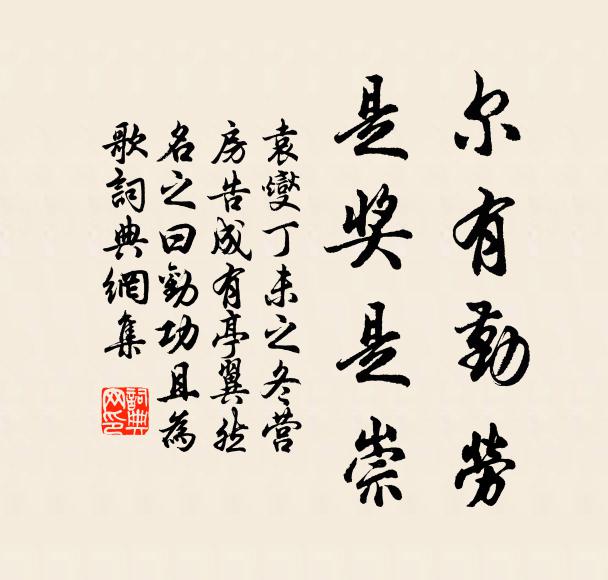 尔有勤劳
是奖是崇
袁燮丁未之冬营
房告成有亭翼然
名之曰勸功且為
歌詞典網集
詞典
网印